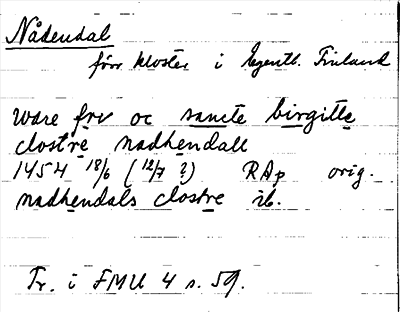 Nådendal
förr kloster i Egentl. Finland
ware frv oc sancte birgitte
clostre nadhendall
1454 18/6 (12/7 ?) RAp orig.
nadhendals clostre ib.
Tr. i FMU 4 s. 59.